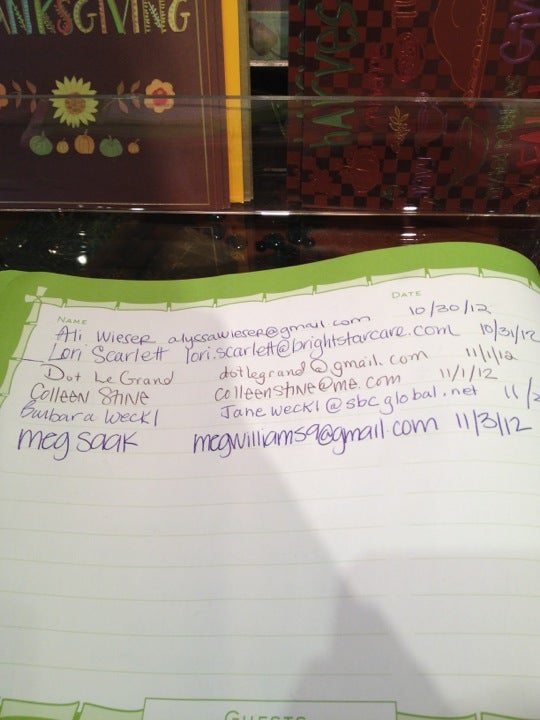 ANKSGIVING
harvest
Giv
NAME
DATE
Ali Wieser alyssawieser@gmail.com 10/30/12
Lori Scarlett lori.scarlett@brightstarcare.com 10/31/12
Dot Le Grand dotlegrand@gmail.com 11/1/12
Colleen Stine colleenstine@me.com 11/1/12
Barbara Weckl Janeweckl@sbcglobal.net 11/2
meg saak megwilliams9@gmail.com 11/3/12
GUESTS